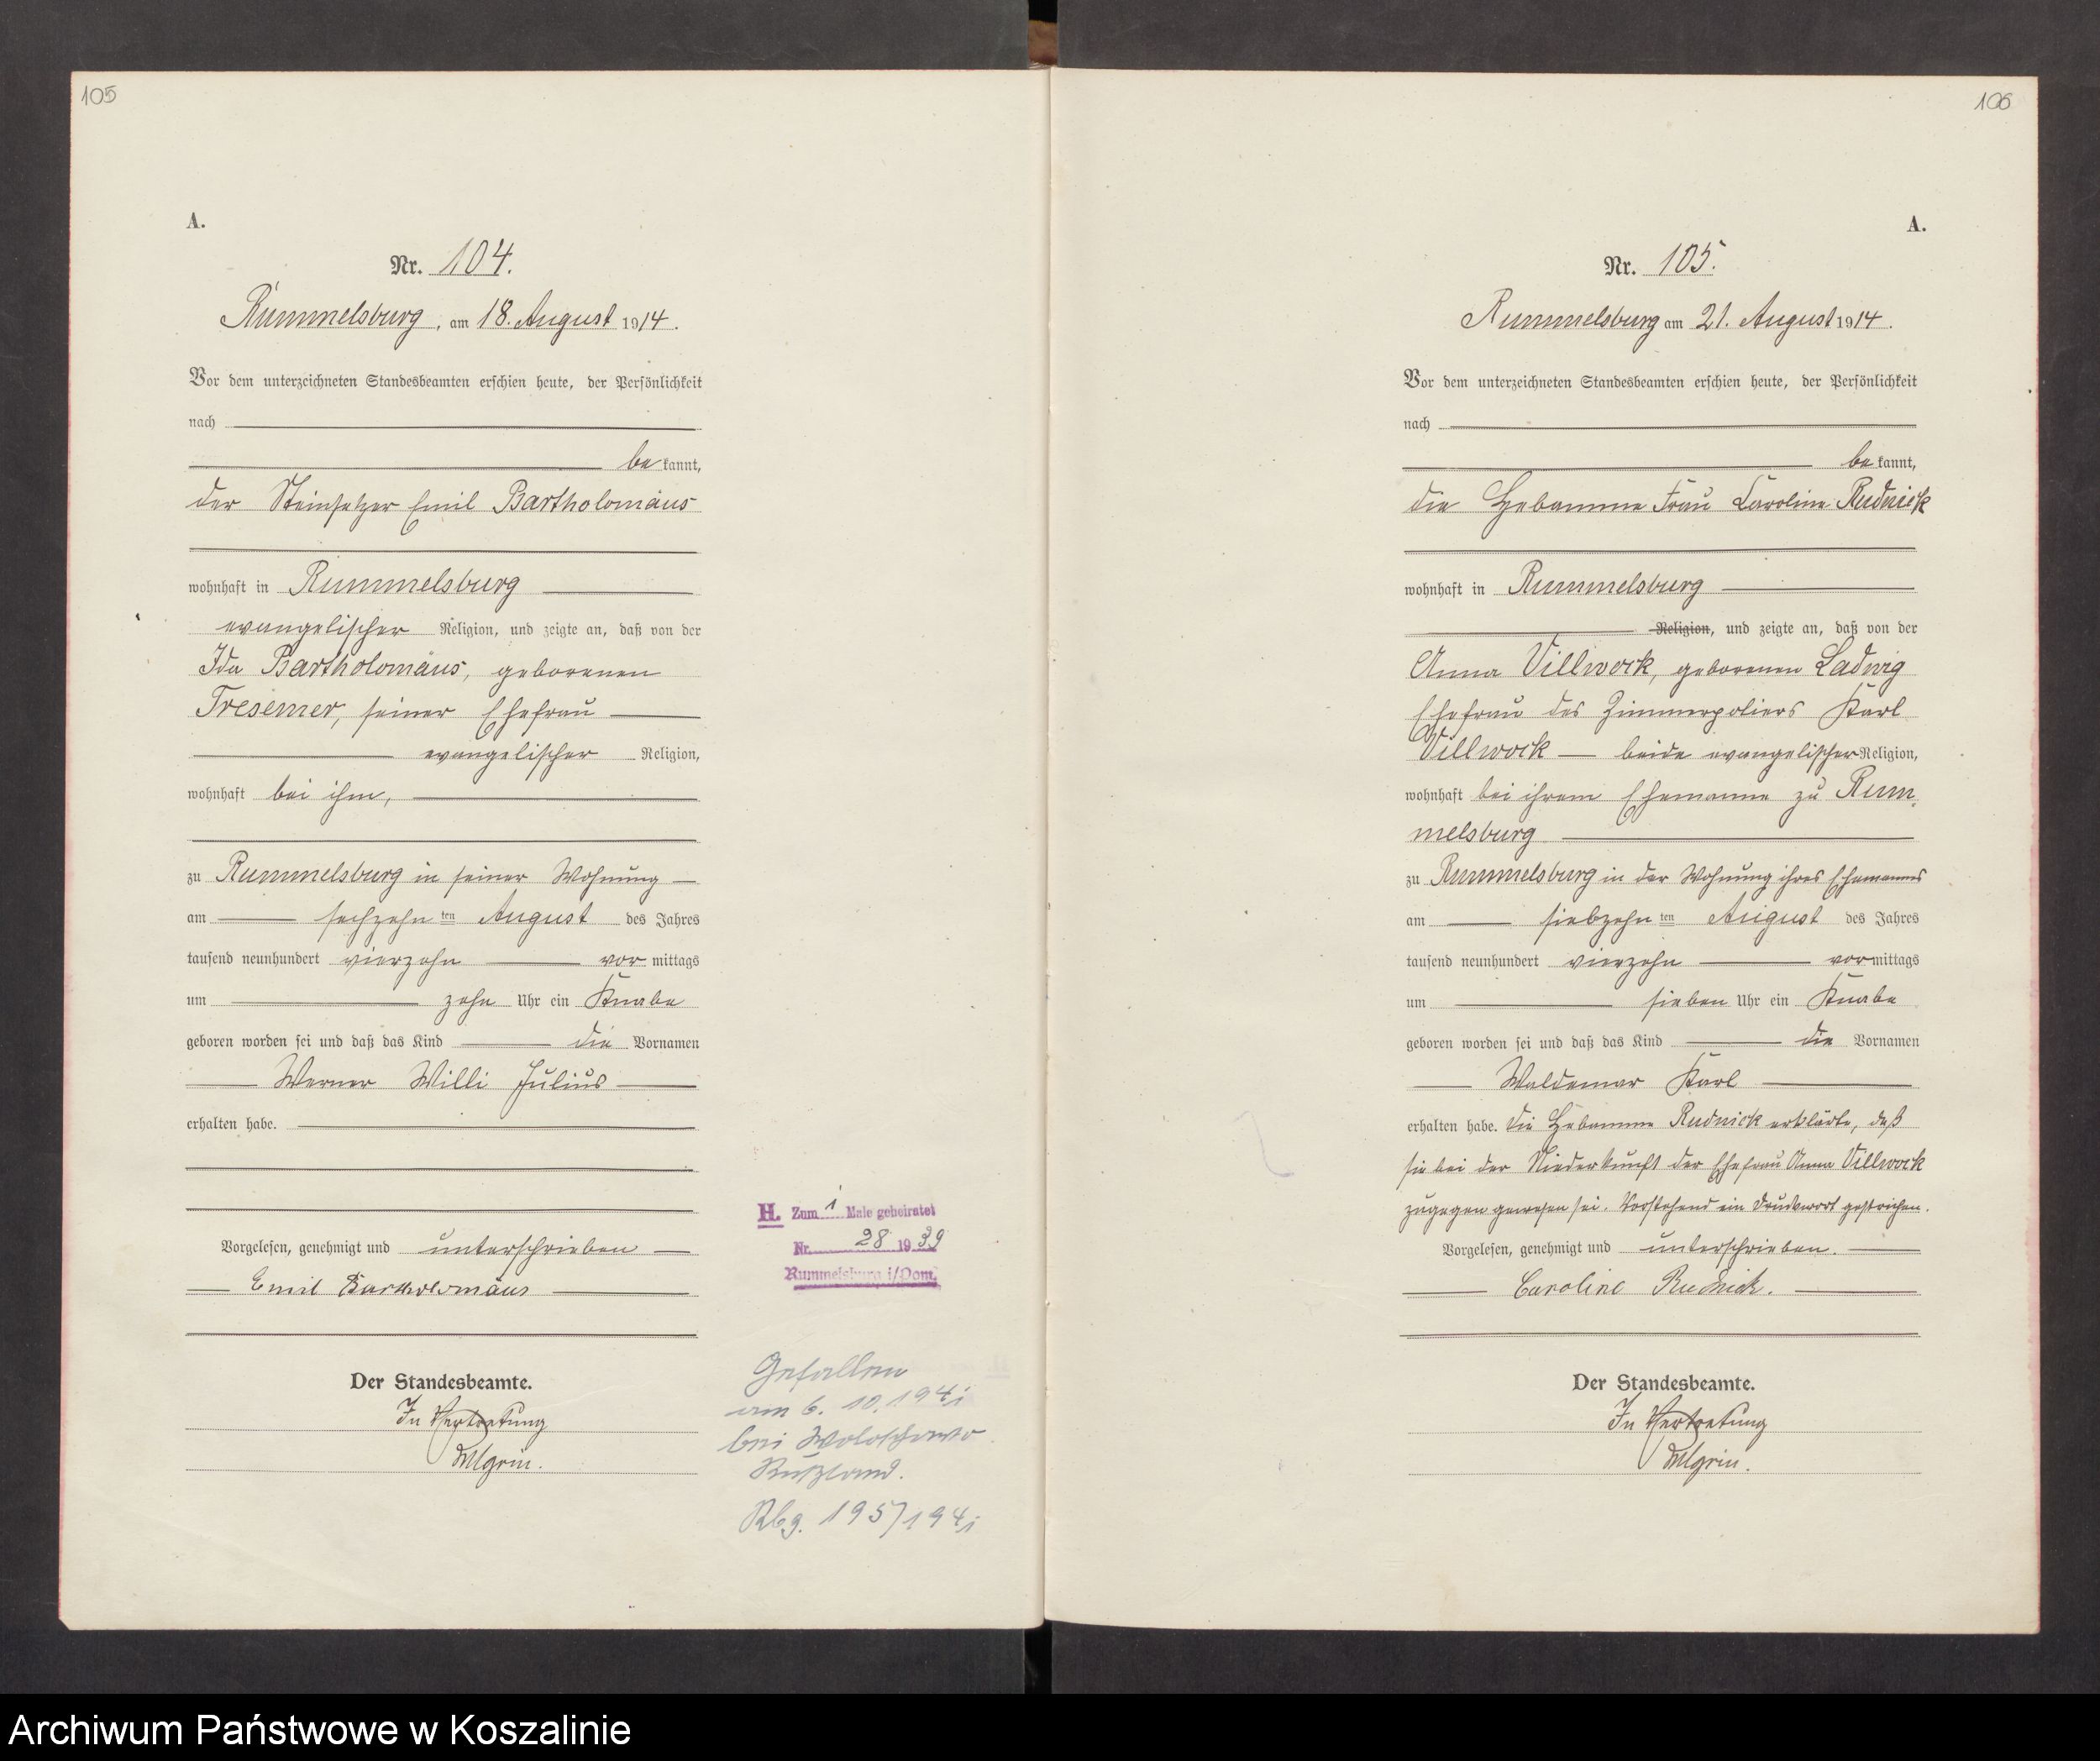 105
A.
Nr. 104.
Rummelsburg, am 18. August 1914.
Vor dem unterzeichneten Standesbeamten erschien heute, der Persönlichkeit
nach
bekannt,
der Steinsetzer Emil Bartholomäus
wohnhaft in Rummelsburg
evangelischer Religion, und zeigte an, daß von der
Ida Bartholomäus, geborenen
Tresemer, seiner Ehefrau
evangelischer Religion,
wohnhaft bei ihm,
zu Rummelsburg in seiner Wohnung
am sechzehnten August des Jahres
tausend neunhundert vierzehn vormittags
um zehn Uhr ein Knabe
geboren worden sei und daß das Kind die Vornamen
Werner Willi Julius
erhalten habe.
Vorgelesen, genehmigt und unterschrieben
Emil Bartholomäus
Der Standesbeamte.
In Vertretung
H. Zum 1 Male geheiratet
Nr. 28 1939
Rummelsburg i/Pom.
Gefallen
am 6. 10. 1941
bei Woloschowo
Rußland.
Rbg. 195/1941
106
A.
Nr. 105.
Rummelsburg am 21. August 1914.
Vor dem unterzeichneten Standesbeamten erschien heute, der Persönlichkeit
nach
bekannt,
die Hebamme Frau Caroline Rudnick
wohnhaft in Rummelsburg
Religion, und zeigte an, daß von der
Anna Villwock, geborenen Ladwig
Ehefrau des Zimmerpoliers Karl
Villwock — beide evangelischer Religion,
wohnhaft bei ihrem Ehemanne zu Rum
melsburg
zu Rummelsburg in der Wohnung ihres Ehemannes
am siebzehnten August des Jahres
tausend neunhundert vierzehn vormittags
um sieben Uhr ein Knabe
geboren worden sei und daß das Kind die Vornamen
Waldemar Karl
erhalten habe. Die Hebamme Rudnick erklärte, daß
sie bei der Niederkunft der Ehefrau Anna Villwock
zugegen gewesen sei. Vorstehend ein Druckwort gestrichen.
Vorgelesen, genehmigt und unterschrieben.
Caroline Rudnick.
Der Standesbeamte.
In Vertretung
Archiwum Państwowe w Koszalinie